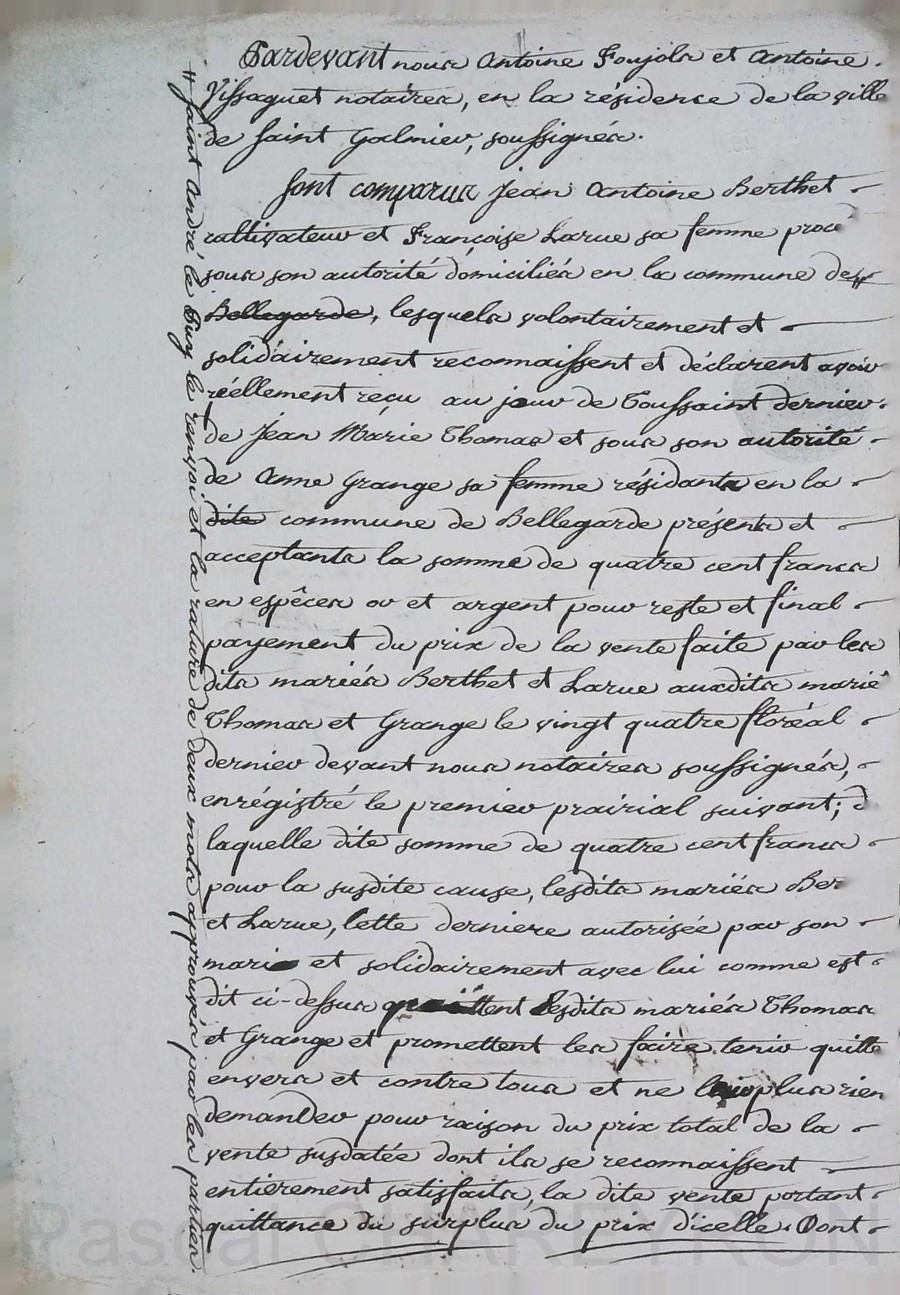 Pardevant nous Antoine Foujols et Antoine
Vissaguet notaires, en la résidence de la ville
de Saint Galmier, soussignés.
Sont comparus Jean Antoine Berthet
cultivateur et Françoise Larue sa femme procé
sous son autorité domiciliés en la commune de #
Bellegarde, lesquels volontairement et
solidairement reconnaissent et déclarent avoir
réellement reçu au jour de Toussaint dernier
de Jean Marie Thomas et sous son autorité
de Anne Grange sa femme résidants en la
dite commune de Bellegarde présents et
acceptants la somme de quatre cent francs
en espèces or et argent pour reste et final
payement du prix de la vente faite par les
dits mariés Berthet et Larue auxdits marié
Thomas et Grange le vingt quatre floréal
dernier devant nous notaires soussignés,
enrégistré le premier prairial suivant; d
laquelle dite somme de quatre cent francs
pour la susdite cause, lesdits mariés Ber
et Larue, cette derniere autorisée par son
mari et solidairement avec lui comme est
dit ci-dessus quittent lesdits mariés Thomas
et Grange et promettent les faire tenir quitte
envers et contre tous et ne leur plus rien
demander pour raison du prix total de la
vente susdatée dont ils se reconnaissent
entierement satisfaits, la dite vente portant
quittance du surplus du prix d'icelle. Dont
# Saint André le Puy le renvoi et la rature de deux mots approuvés par les parties.
Pascal CHAREYRON